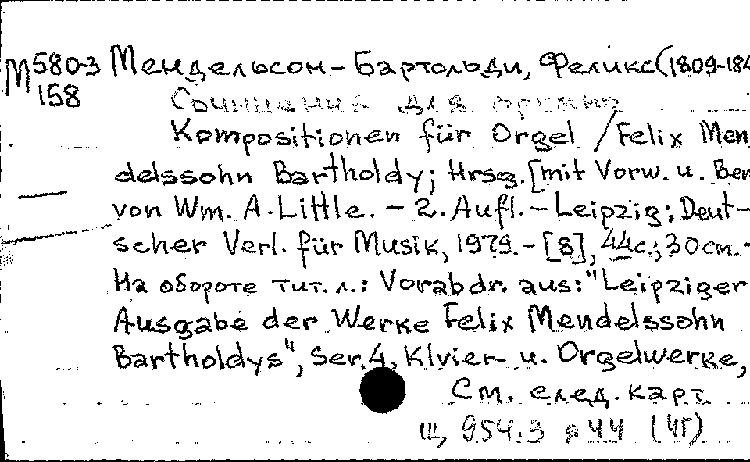 М580-3 Мендельсон-Бартольди, Феликс(1809-184
158
Сочинения для органа
Kompositionen für Orgel / Felix Men
delssohn Bartholdy; Hrsg. [mit Vorw. u. Ber
von Wm. A. Little. - 2. Aufl. - Leipzig; Deut-
scher Verl. für Musik, 1979. - [8], 44 с.; 30 см. -
На обороте тит. л.: Vorabdr. aus: "Leipziger
Ausgabe der Werke Felix Mendelssohn
Bartholdys", Ser. 4, Klvier- u. Orgelwerke,
См. след. карт.
954.3